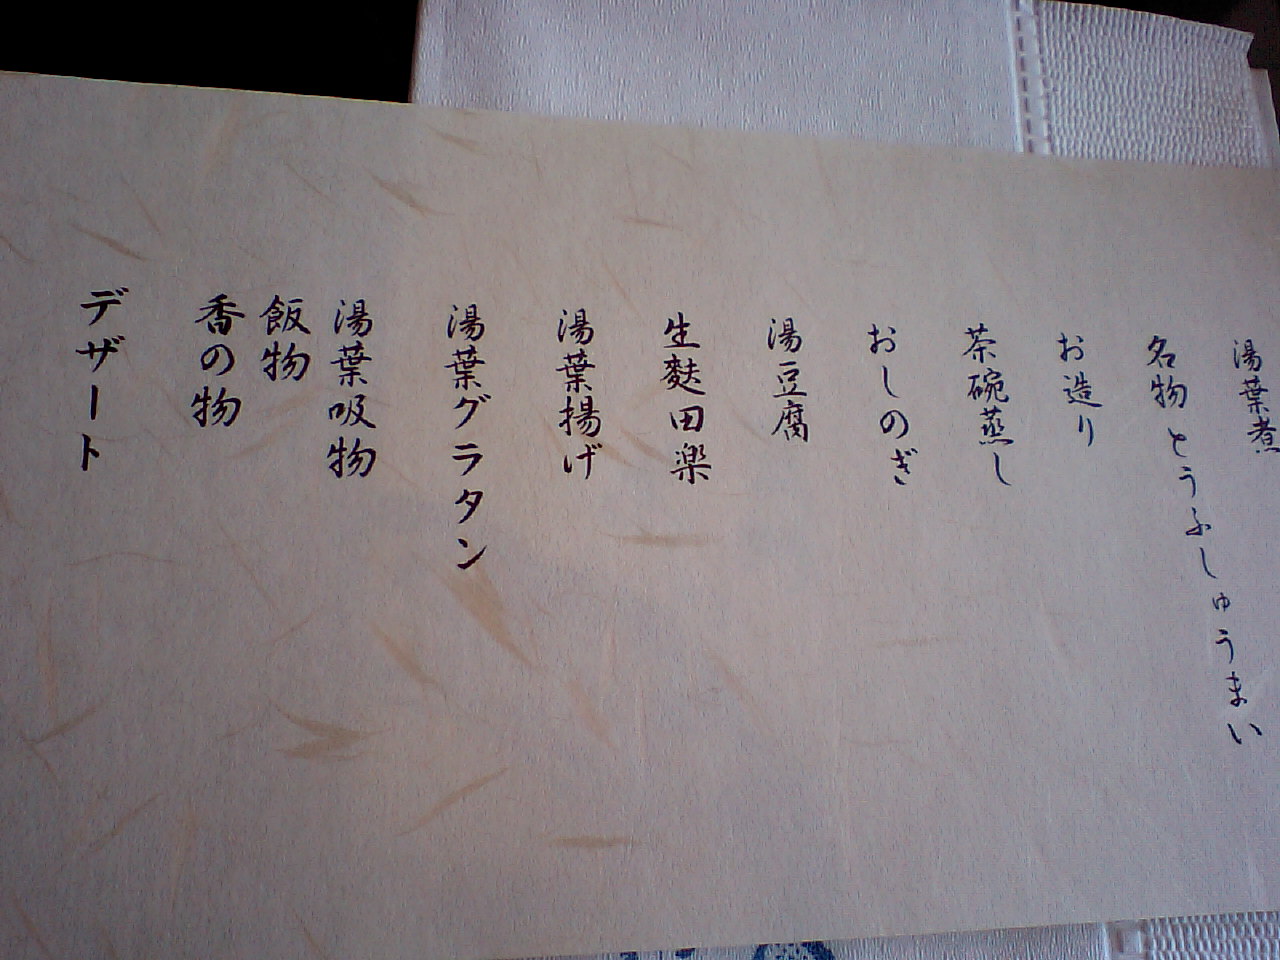 湯葉煮
名物とうふしゅうまい
お造り
茶碗蒸し
おしのぎ
湯豆腐
生麩田楽
湯葉揚げ
湯葉グラタン
湯葉吸物
飯物
香の物
デザート